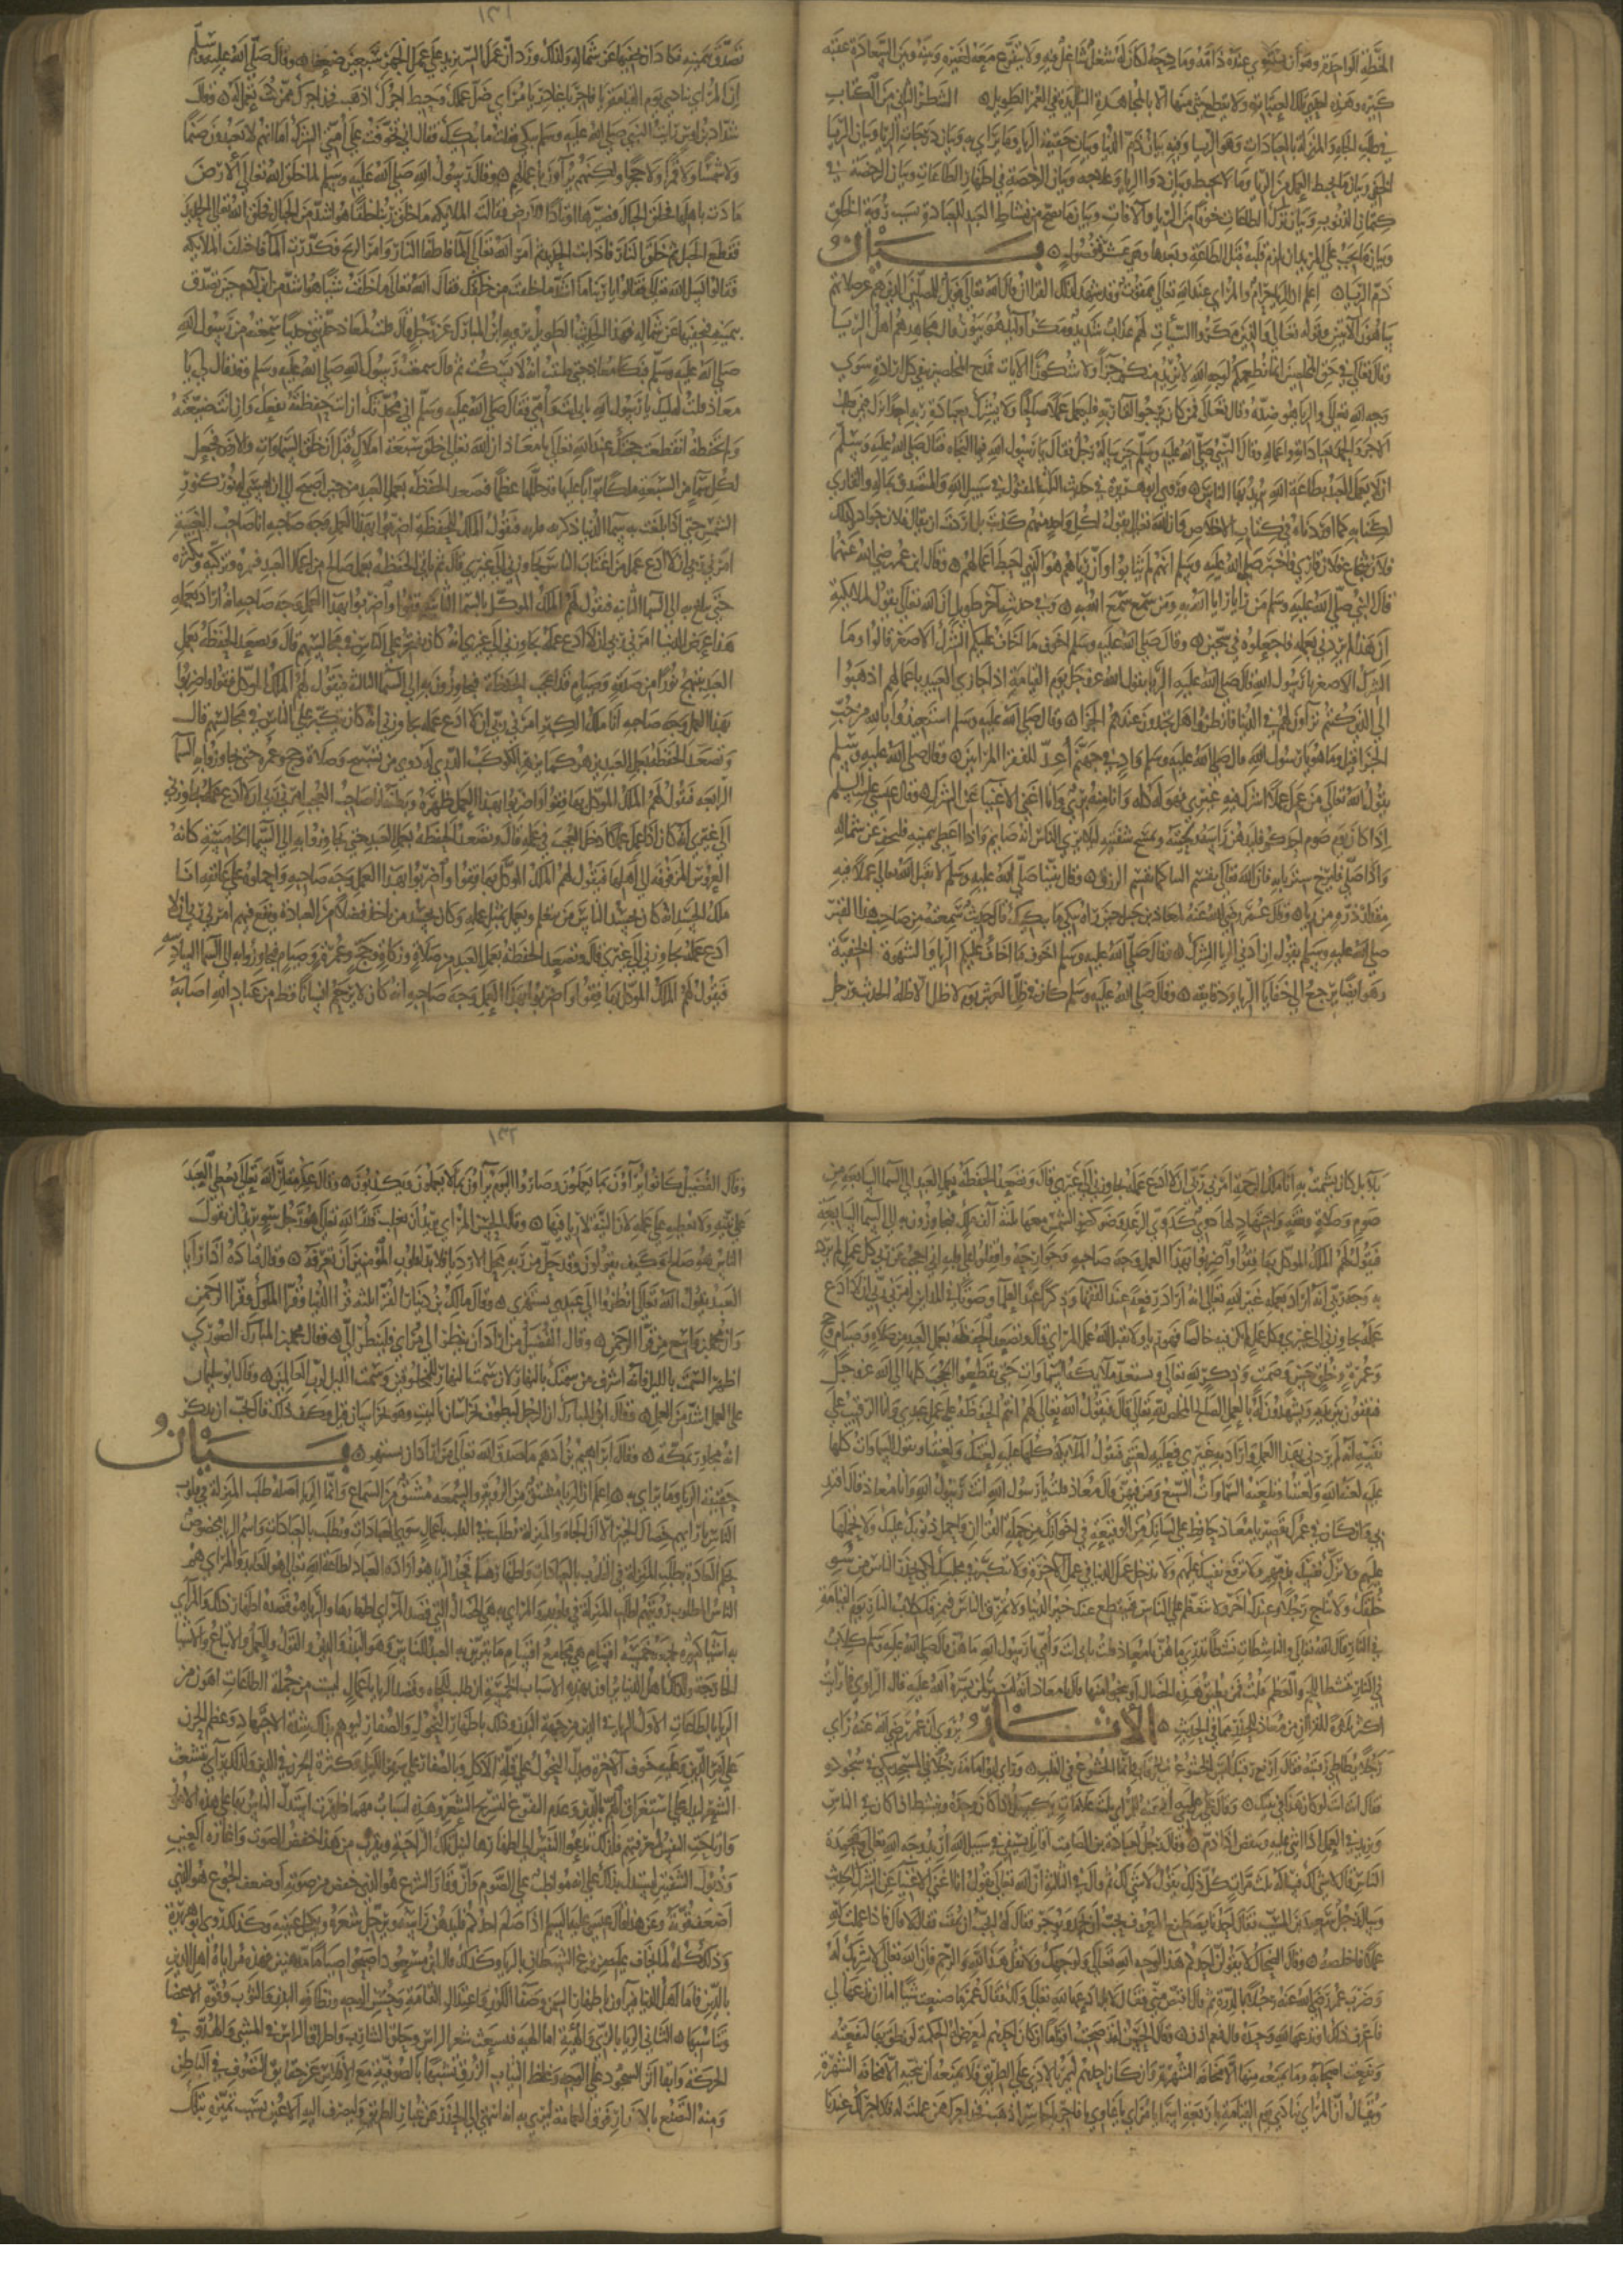 كبيرة وهذه اخيرا تلك الصبابة ولا ينقطع حتى منها الا بالمجاهدة الشديدة في العمر الطويل ۞ الشطر الثاني من الكتاب
في طلب الجاه والمنزلة بالعبادات وهو الريا وفيه بيان ذم الريا وبيان حقيقة الريا وما يراي به وبيان درجات الريا وبيان الريا
الخفي وبيان ما يحبط العمل من الريا وما لا يحبط وبيان دوا الريا وعلاجه وبيان الرخصة في اظهار الطاعات وبيان الرخصة في
كتمان الذنوب وبيان ترك الطاعات خوفا من الريا والافات وبيان ما يصح من نشاط العبد للعبادة بسبب رؤية الخلق
وبيان ما يجب على المريد ان يلزم قلبه قبل الطاعة وبعدها وهي عشرة فصول ۞ بيان
ذم الريا ۞ اعلم ان الريا حرام والمراي عند الله تعالى ممقوت وقد شهد لذلك القران قال الله تعالى فويل للمصلين الذين هم عن صلاتهم
ساهون الذين هم وقوله تعالى والذين يمكرون السيئات لهم عذاب شديد ومكر اوليك هو يبور قال مجاهد هم اهل الريا
وقال تعالى في حق المخلصين انما نطعمكم لوجه الله لا نريد منكم جزاء ولا شكورا الايات فمدح المخلصين بنفي كل ارادة سوى
وجه الله تعالى والريا هو ضده وقال تعالى فمن كان يرجوا لقا ربه فليعمل عملا صالحا ولا يشرك بعبادة ربه احدا نزل فيمن يطلب
الاجر والحمد بعباداته واعماله وقال النبي صلى الله عليه وسلم حين ساله رجل فقال يا رسول الله فيم النجاة فقال صلى الله عليه وسلم
ان لا يعمل العبد بطاعة الله يريد بها الناس ۞ وروى ابو هريرة في حديث الثلاثة المقتول في سبيل الله والمتصدق بماله والقاري
لكتابه كما اوردناه في كتاب الاخلاص وان الله تعالى يقول لكل واحد منهم كذبت بل اردت ان يقال فلان جواد كذبت
فلان شجاع فلان قاري فاخبر صلى الله عليه وسلم انهم لم يثابوا وان رياهم هو الذي احبط اعمالهم ۞ وقال ابن عمر رضي الله عنهما
قال النبي صلى الله عليه وسلم من رايا رايا الله به ومن سمع سمع الله به ۞ وفي حديث اخر طويل ان الله تعالى يقول لملايكته
ان هذا لم يردني بعمله فاجعلوه في سجين ۞ وقال صلى الله عليه وسلم اخوف ما اخاف عليكم الشرك الاصغر قالوا وما
الشرك الاصغر يا رسول الله قال صلى الله عليه الريا يقول الله عز وجل يوم القيامة اذا جازى العبيد باعمالهم اذهبوا
الى الذين كنتم تراون لهم في الدنيا فانظروا هل تجدون عندهم الجزا ۞ وقال صلى الله عليه وسلم استعيذوا بالله من جب
الحزن قيل وما هو يا رسول الله قال صلى الله عليه وسلم واد في جهنم اعد للقرا المراين ۞ وقال صلى الله عليه وسلم
يقول الله تعالى من عمل عملا اشرك فيه غيري فهو له كله وانا منه بري وانا اغنى الاغنيا عن الشرك ۞ وقال عيسى عليه السلم
اذا كان يوم صوم احدكم فليدهن راسه ولحيته ويمسح شفتيه ليلا يرى الناس انه صايم واذا اعطى بيمينه فليخف عن شماله
واذا صلى فليرخ ستر بابه فان الله تعالى يقسم الثنا كما يقسم الرزق ۞ وقال نبينا صلى الله عليه وسلم لا يقبل الله تعالى عملا فيه
مثقال ذرة من ريا ۞ وقال عمر رضي الله عنه لمعاذ بن جبل حين راه يبكي ما يبكيك قال حديث سمعته من صاحب هذا القبر
صلى الله عليه وسلم يقول ان ادنى الريا الشرك ۞ وقال صلى الله عليه وسلم اخوف ما اخاف عليكم الريا والشهوة الخفية
وهو ايضا يرجع الى خفايا الريا ودقايقه ۞ وقال صلى الله عليه وسلم كان في ظل العرش يوم لا ظل الا ظله الحديث ورجل
١٣١
تصدق بيمينه فكاد ان يخفيها عن شماله ولذلك ورد ان عمل السر يزيد على عمل الجهر سبعين ضعفا ۞ وقال صلى الله عليه وسلم
ان المراي ينادى يوم القيامة يا فاجر يا غادر يا مراي ضل عملك وحبط اجرك اذهب فخذ اجرك ممن كنت تعمل له ۞ وقال
شداد بن اوس رايت النبي صلى الله عليه وسلم يبكي فقلت ما يبكيك فقال اني تخوفت على امتي الشرك اما انهم لا يعبدون صنما
ولا شمسا ولا قمرا ولا حجرا ولكنهم يراون باعمالهم ۞ وقال رسول الله صلى الله عليه وسلم لما خلق الله تعالى الارض
مادت باهلها فخلق الجبال فصيرها اوتادا للارض فقالت الملايكة ما خلق ربنا خلقا هو اشد من الجبال فخلق الله تعالى الحديد
فقطع الجبال ثم خلق النار فاذابت الحديد ثم امر الله تعالى الما فاطفا النار وامر الريح فكدرت الما فاختلفت الملايكة
يمينه فيخفيها عن شماله فهذا
صلى الله عليه وسلم فبكى معاذ حتى ظننت انه لا يسكت ثم سكت ثم قال سمعت رسول الله صلى الله عليه وسلم وقد قال لي يا
معاذ قلت لبيك يا رسول الله بابي انت وامي فقال صلى الله عليه وسلم اني محدثك ان انت حفظته نفعك وان انت ضيعته
ولم تحفظه انقطعت حجتك عند الله تعالى يا معاذ ان الله تعالى خلق سبعة املاك قبل ان خلق السماوات والارض فجعل
لكل سما من السبعة ملكا بوابا عليها قد جللها عظما فتصعد الحفظة بعمل العبد من حين اصبح الى ان امسى له نور كنور
الشمس حتى اذا بلغت به سما الدنيا فيقول الملك للحفظة اضربوا بهذا العمل وجه صاحبه انا صاحب الغيبة
امرني ربي ان لا ادع عمل من اغتاب الناس يجاوزني الى غيري قال ثم تاتي الحفظة بعمل صالح من اعمال العبد فتمر به فتزكيه وتكثره
حتى تبلغ به الى السما الثانية فيقول لهم الملك الموكل بالسما الثانية قفوا واضربوا بهذا العمل وجه صاحبه انه اراد بعمله
هذا عرض الدنيا امرني ربي ان لا ادع عمله يجاوزني الى غيري انه كان يفتخر على الناس في مجالسهم قال وتصعد الحفظة بعمل
العبد يبتهج نورا من صدقة وصيام قد اعجب الحفظة فيجاوزون به الى السما الثالثة فيقول لهم الملك الموكل قفوا واضربوا
بهذا العمل وجه صاحبه انا ملك الكبر امرني ربي ان لا ادع عمله يجاوزني انه كان يتكبر على الناس في مجالسهم قال
وتصعد الحفظة بعمل العبد يزهر كما يزهر الكوكب الدري له دوي من تسبيح وصلاة وحج وعمرة حتى يجاوزوا به السما
الرابعة فيقول لهم الملك الموكل بها قفوا واضربوا بهذا العمل ظهره وبطنه انا صاحب العجب امرني ربي ان لا ادع عمله يجاوزني
الى غيري انه كان اذا عمل عملا ادخل العجب في عمله قال وتصعد الحفظة بعمل العبد حتى يجاوزوا به الى السما الخامسة كانه
العروس المزفوفة الى اهلها فيقول لهم الملك الموكل بها قفوا واضربوا بهذا العمل وجه صاحبه واحملوه على عاتقه انا
ملك الحسد انه كان يحسد الناس من يتعلم ويعمل بمثل عمله وكان يحسد من ياخذ فضلا من العبادة ويقع فيهم امرني ربي ان لا
ادع عمله يجاوزني الى غيري قال وتصعد الحفظة بعمل العبد من صلاة وزكاة وحج وعمرة وصيام فيجاوزوا به الى السما السادسة
فيقول لهم الملك الموكل بها قفوا واضربوا بهذا العمل وجه صاحبه انه كان لا يرحم انسانا قط من عباد الله اصابه
بلا بل كان يشمت به انا ملك الرحمة امرني ربي ان لا ادع عمله يجاوزني الى غيري قال وتصعد الحفظة بعمل العبد الى السما السابعة من
صوم وصلاة ونفقة واجتهاد لها دوي كدوي الرعد وضو كضو الشمس معها ثلثة الف ملك فيجاوزون به الى السما السابعة
فيقول لهم الملك الموكل بها قفوا واضربوا بهذا العمل وجه صاحبه وجوارحه واقفلوا على قلبه اني احجب عن ربي كل عمل لم يرد
به وجه ربي انه اراد بعمله غير الله تعالى انه اراد رفعة عند الفقها وذكرا عند العلما وصوتا في المداين امرني ربي ان لا ادع
عمله يجاوزني الى غيري وكل عمل لم يكن لله خالصا فهو ريا ولا يقبل الله عمل المراي قال وتصعد الحفظة بعمل العبد من صلاة وصيام وحج
وعمرة وخلق حسن وصمت وذكر لله تعالى وتشيعه ملايكة السماوات حتى يقطعوا الحجب كلها الى الله عز وجل
فيقفون بين يديه ويشهدون له بالعمل الصالح المخلص لله تعالى قال فيقول الله تعالى لهم انتم الحفظة على عمل عبدي وانا الرقيب على
نفسه انه لم يردني بهذا العمل واراد به غيري فعليه لعنتي فتقول الملايكة كلها عليه لعنتك ولعنتنا وتقول السماوات كلها
عليه لعنة الله ولعنتنا وتلعنه السماوات السبع ومن فيهن قال معاذ قلت يا رسول الله انت رسول الله وانا معاذ قال اقتد
بي وان كان في عملك تقصير يا معاذ حافظ على لسانك من الوقيعة في اخوانك من حملة القران واحمل ذنوبك عليك ولا تحملها
عليهم ولا تزك نفسك بذمهم ولا ترفع نفسك عليهم ولا تدخل عمل الدنيا في عمل الاخرة ولا تتكبر في مجلسك لكي يحذر الناس من سو
خلقك ولا تناج رجلا وعندك اخر ولا تتعظم على الناس فينقطع عنك خير الدنيا ولا تمزق الناس فيمزقك كلاب النار يوم القيامة
في النار قال الله تعالى والناشطات نشطا تدري ما هن يا معاذ قلت ما هن بابي انت وامي يا رسول الله قال صلى الله عليه وسلم كلاب
في النار تنشط اللحم والعظم قلت فمن يطيق هذه الخصال ومن ينجو منها قال يا معاذ انه ليسير على من يسره الله عليه قال الراوي فما رايت
اكثر تلاوة للقران من معاذ للحذر مما في الحديث ۞ الاثار يروى ان عمر رضي الله عنه راى
رجلا يطاطي رقبته فقال ارفع رقبتك ليس الخشوع في الرقاب انما الخشوع في القلب ۞ وراى ابو امامة رجلا في المسجد يبكي في سجوده
فقال انت انت لو كان هذا في بيتك ۞ وقال علي رضي الله عنه للمراي ثلث علامات يكسل اذا كان وحده وينشط اذا كان في الناس
ويزيد في العمل اذا اثني عليه وينقص اذا ذم ۞ وقال رجل لعبادة بن الصامت اقاتل بسيفي في سبيل الله اريد وجه الله تعالى ومحمدة
الناس قال لا شي لك فساله ثلث مرات كل ذلك يقول لا شي لك ثم قال في الثالثة ان الله تعالى يقول انا اغنى الاغنيا عن الشرك الحديث
وسال رجل سعيد بن المسيب فقال ان احدنا يصطنع المعروف يحب ان يحمد ويوجر فقال له اتحب ان تمقت فقال لا قال فاذا عملت لله
عملا فاخلصه ۞ وقال الضحاك لا يقولن احدكم هذا لوجه الله تعالى ولوجهك ولا يقل هذا لله وللرحم فان الله تعالى لا شريك له
وضرب عمر رضي الله عنه رجلا بالدرة ثم قال اقتص مني فقال لا بل ادعها لله تعالى ولك فقال عمر ما صنعت شيئا اما ان تدعها لي
فاعرف ذلك او تدعها لله وحده قال فنعم اذن ۞ وقال الحسن لقد صحبت اقواما ان كان احدهم لتعرض له الحكمة لو نطق بها لنفعته
ونفعت اصحابه وما يمنعه منها الا مخافة الشهرة وان كان احدهم ليمر فيرى الاذى على الطريق فلا يمنعه ان ينحيه الا مخافة الشهرة
ويقال ان المراي ينادى يوم القيامة باربعة اسما يا مراي يا غاوي يا فاجر يا خاسر اذهب فخذ اجرك ممن عملت له فلا اجر لك عندنا
١٣٢
وقال الفضيل كانوا يراون بما يعملون وصاروا اليوم يراون بما لا يعملون ۞ وقال عكرمة ان الله تعالى يعطي العبد
على نيته ما لا يعطيه على عمله لان النية لا ريا فيها ۞ وقال الحسن المراي يريد ان يغلب قدر الله تعالى هو رجل سو يريد ان يقول
الناس هو صالح وكيف يقولون وقد حل من ربه محل الاردياء فلا بد لقلوب المؤمنين ان تعرفه ۞ وقال قتادة اذا رايا
العبد يقول الله تعالى انظروا الى عبدي يستهزي ۞ وقال مالك بن دينار القرا ثلثة قرا الدنيا وقرا الملوك وقرا الرحمن
وان محمد بن واسع من قرا الرحمن ۞ وقال الفضيل من اراد ان ينظر الى مراي فلينظر الي ۞ وقال محمد بن المبارك الصوري
اظهر السمت بالليل فانه اشرف من سمتك بالنهار لان سمت النهار للمخلوقين وسمت الليل لرب العالمين ۞ وقال ابو سليمان
على العمل اشد من العمل ۞ وقال ابن المبارك ان الرجل ليطوف بالبيت وهو بخراسان قيل وكيف ذلك قال يحب ان يذكر
انه مجاور بمكة ۞ وقال ابراهيم بن ادهم ما صدق الله تعالى من اراد ان يشتهر ۞ بيان
حقيقة الريا وما يراي به ۞ اعلم ان الريا مشتق من الروية والسمعة مشتق من السماع وانما الريا اصله طلب المنزلة في قلوب
الناس بايرايهم خصال الخير الا ان الجاه والمنزلة تطلب في القلب باعمال سوى العبادات وتطلب بالعبادات واسم الريا مخصوص
بحكم العادة بطلب المنزلة في القلوب بالعبادات واظهارها فحد الريا هو ارادة العباد بطاعة الله تعالى فالمراي هو العابد والمراي هم
الناس المطلوب رؤيتهم لطلب المنزلة في قلوبهم والمراي به هي الخصال التي قصد المراي اظهارها والريا هو قصده اظهار ذلك والمراي
به اشيا كثيرة يجمعه خمسة اقسام هي مجامع اقسام ما يتزين به العبد للناس وهو البدن والزي والقول والعمل والاتباع والاشيا
الخارجة وكذلك اهل الدنيا يراون بهذه الاسباب الخمسة الا ان طلب الجاه وقصد الريا باعمال ليست من جملة الطاعات اهون من
الريا بالطاعات الاول الريا في الدين من جهة البدن وذلك باظهار النحول والصفار ليوهم بذلك شدة الاجتهاد وعظم الحزن
على امر الدين وغلبة خوف الاخرة وليدل بالنحول على قلة الاكل وبالصفار على سهر الليل وكثرة الحزن في الدين وكذلك يراي بتشعث
الشعر ليدل على استغراق الهم بالدين وعدم التفرغ لتسريح الشعر وهذه اسباب مهما ظهرت استدل الناس بها على هذه الامور
وارتاحت النفس لمعرفتهم فلذلك تدعوا النفس الى اظهارها لنيل تلك الراحة ويقرب من هذا خفض الصوت واغارة العينين
وذبول الشفتين ليستدل بذلك على انه مواظب على الصوم وان وقار الشرع هو الذي خفض من صوته او ضعف الجوع هو الذي
اضعف قوته وعن هذا قال عيسى عليه السلم اذا صام احدكم فليدهن راسه ويرجل شعره ويكحل عينيه وكذلك روى ابو هريرة
وذلك كله لما يخاف عليهم من نزغ الشيطان بالريا وكذلك قال ابن مسعود اصبحوا صياما مدهنين فهذه مراياة اهل الدين
بالبدن فاما اهل الدنيا فيراون باظهار السمن وصفا اللون واعتدال القامة وحسن الوجه ونظافة البدن والثوب وقوة الاعضا
وتناسبها ۞ الثاني الريا بالزي والهيئة اما الهيئة فتشعيث شعر الراس وحلق الشارب واطراق الراس في المشي والهدو في
الحركة وابقا اثر السجود على الوجه وغلظ الثياب
ومنه التقنع بالازار فوق العمامة